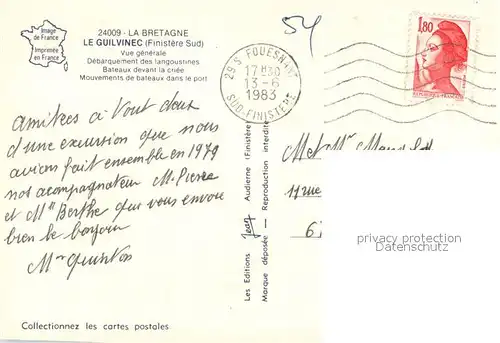 Image
de France
Imprimée
en France
24009 - LA BRETAGNE
LE GUILVINEC (Finistère Sud)
Vue générale
Débarquement des langoustines
Bateaux devant la criée
Mouvements de bateaux dans le port
54
29S FOUESNANT
17H30
13-6
1983
SUD-FINISTERE
1,80
amitées à Vout deux
d'une excursion que nous
avions fait ensemble en 1979
not acompagnateur M. Pierre
et Mlle Berthe qui vous envoie
bien le bonjour
Mr Quintos
Les Editions Jean Audierne (Finistère)
Marque déposée - Reproduction interdite
M et Mme
11 rue
6
privacy protection
datenschutz
Collectionnez les cartes postales